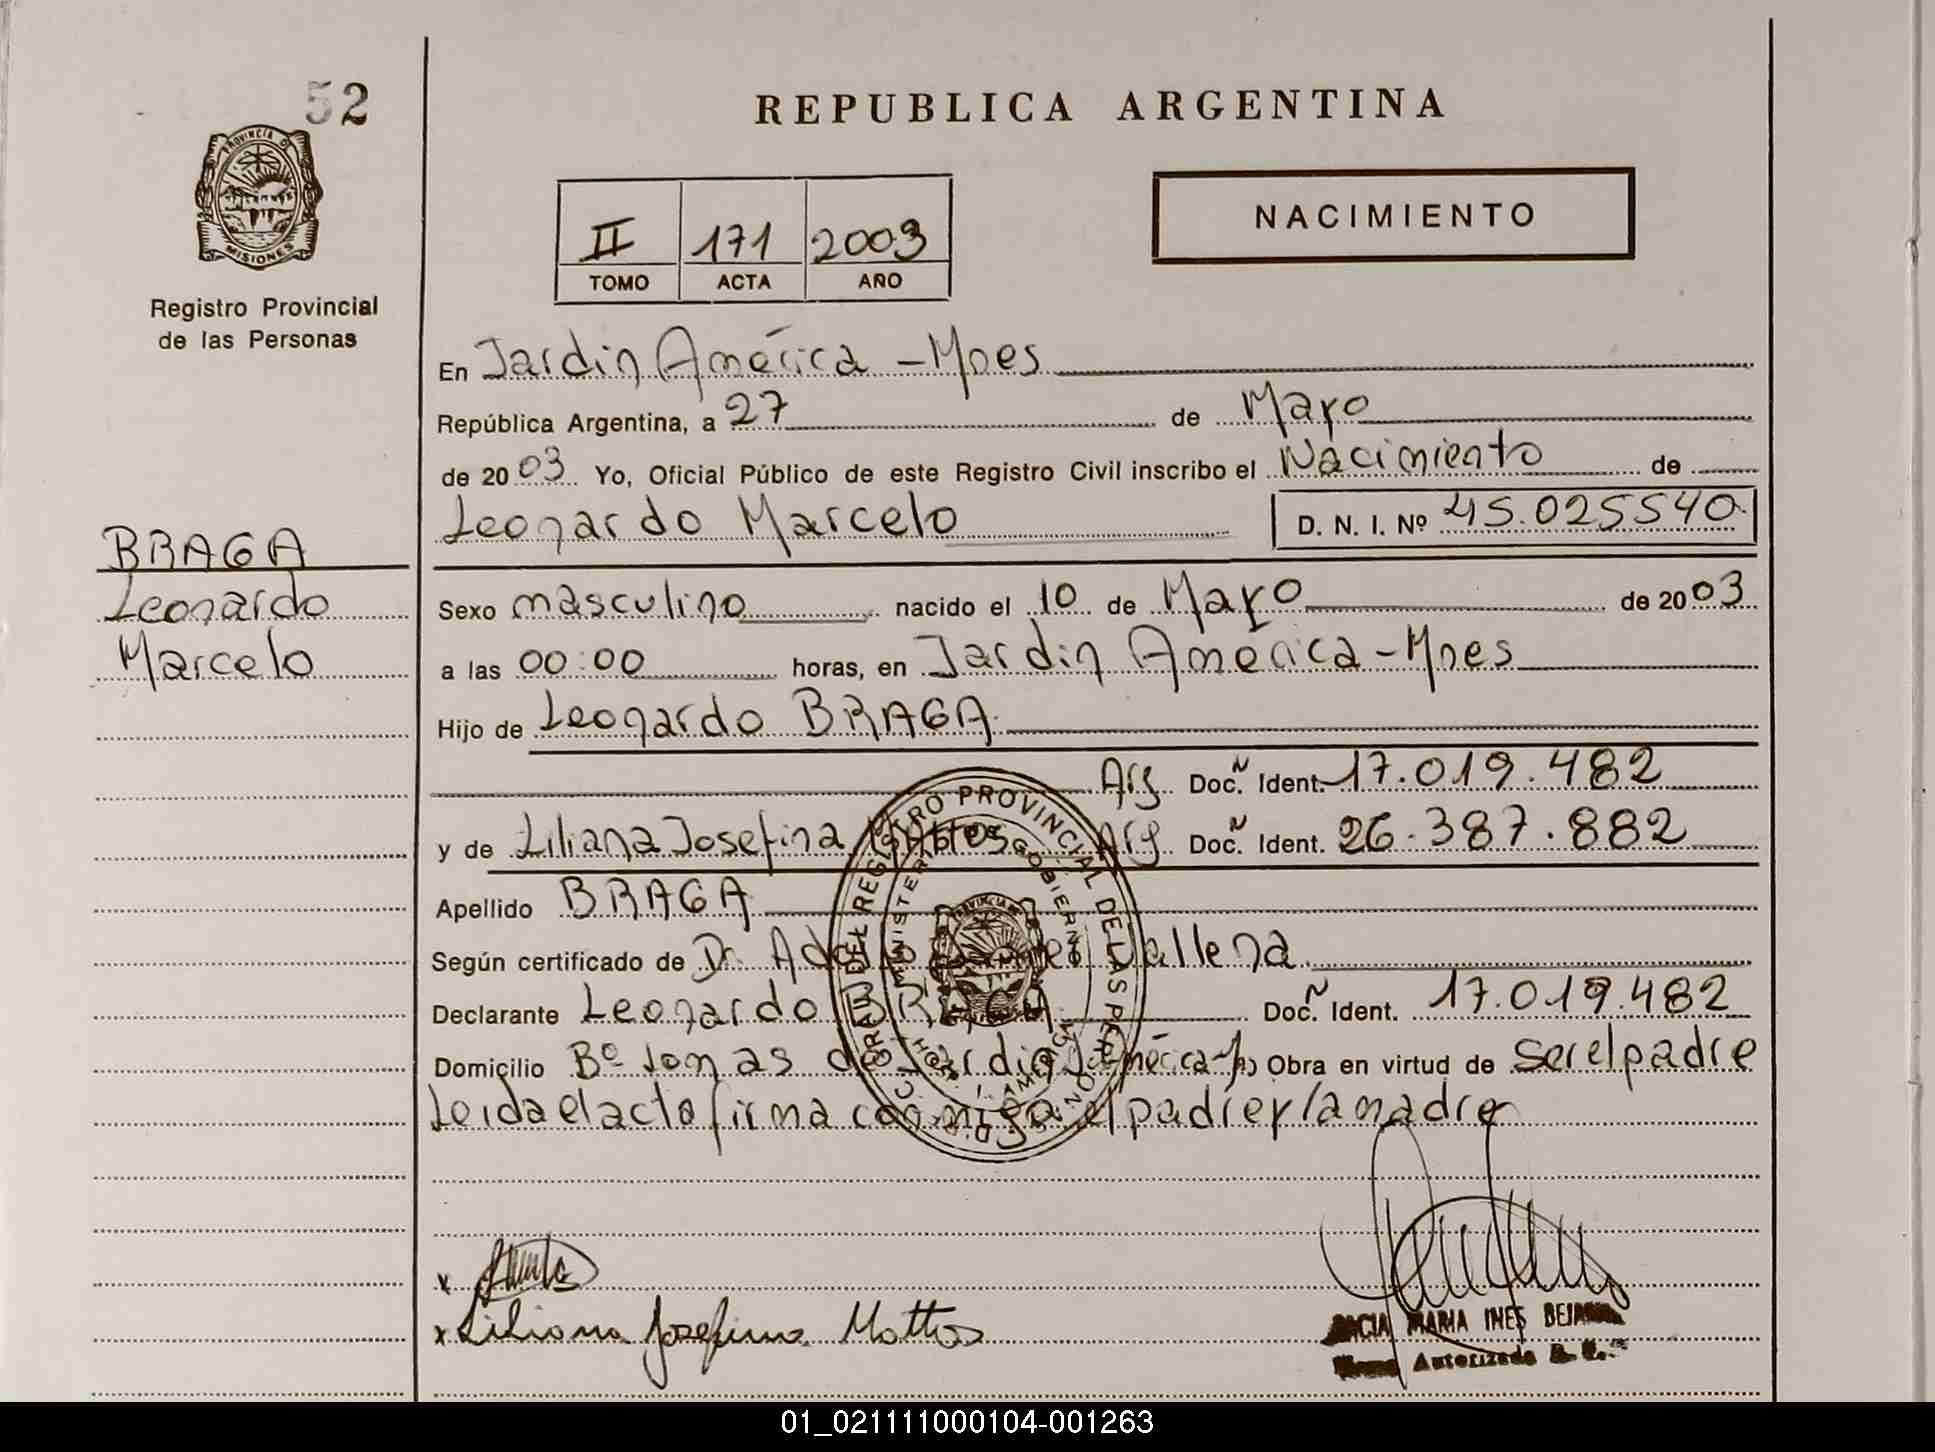 52
PROVINCIA D
MISIONES
Registro Provincial
de las Personas
REPUBLICA ARGENTINA
II 171 2003
TOMO ACTA AÑO
NACIMIENTO
En Jardin América - Mnes
República Argentina, a 27 de Mayo
de 2003 Yo, Oficial Público de este Registro Civil inscribo el Nacimiento de
Leonardo Marcelo D. N. I. Nº 45.025540
BRAGA
Leonardo
Marcelo
Sexo masculino nacido el 10 de Mayo de 2003
a las 00:00 horas, en Jardin América - Mnes
Hijo de Leonardo BRAGA
Arg Doc. N Ident. 17.019.482
y de Liliana Josefina Arg Doc. N Ident. 26.387.882
Apellido BRAGA
Según certificado de Dr. Vallena
Declarante Leonardo BRAGA Doc. N Ident. 17.019.482
Domicilio Bº Lomas de Jardin América Obra en virtud de ser el padre
Leida el acta firma conmigo el padre y la madre
REGISTRO PROVINCIAL DE LAS PERSONAS
x
x Liliana Josefina Mattos
MARIA INES
Autorizada
01_021111000104-001263